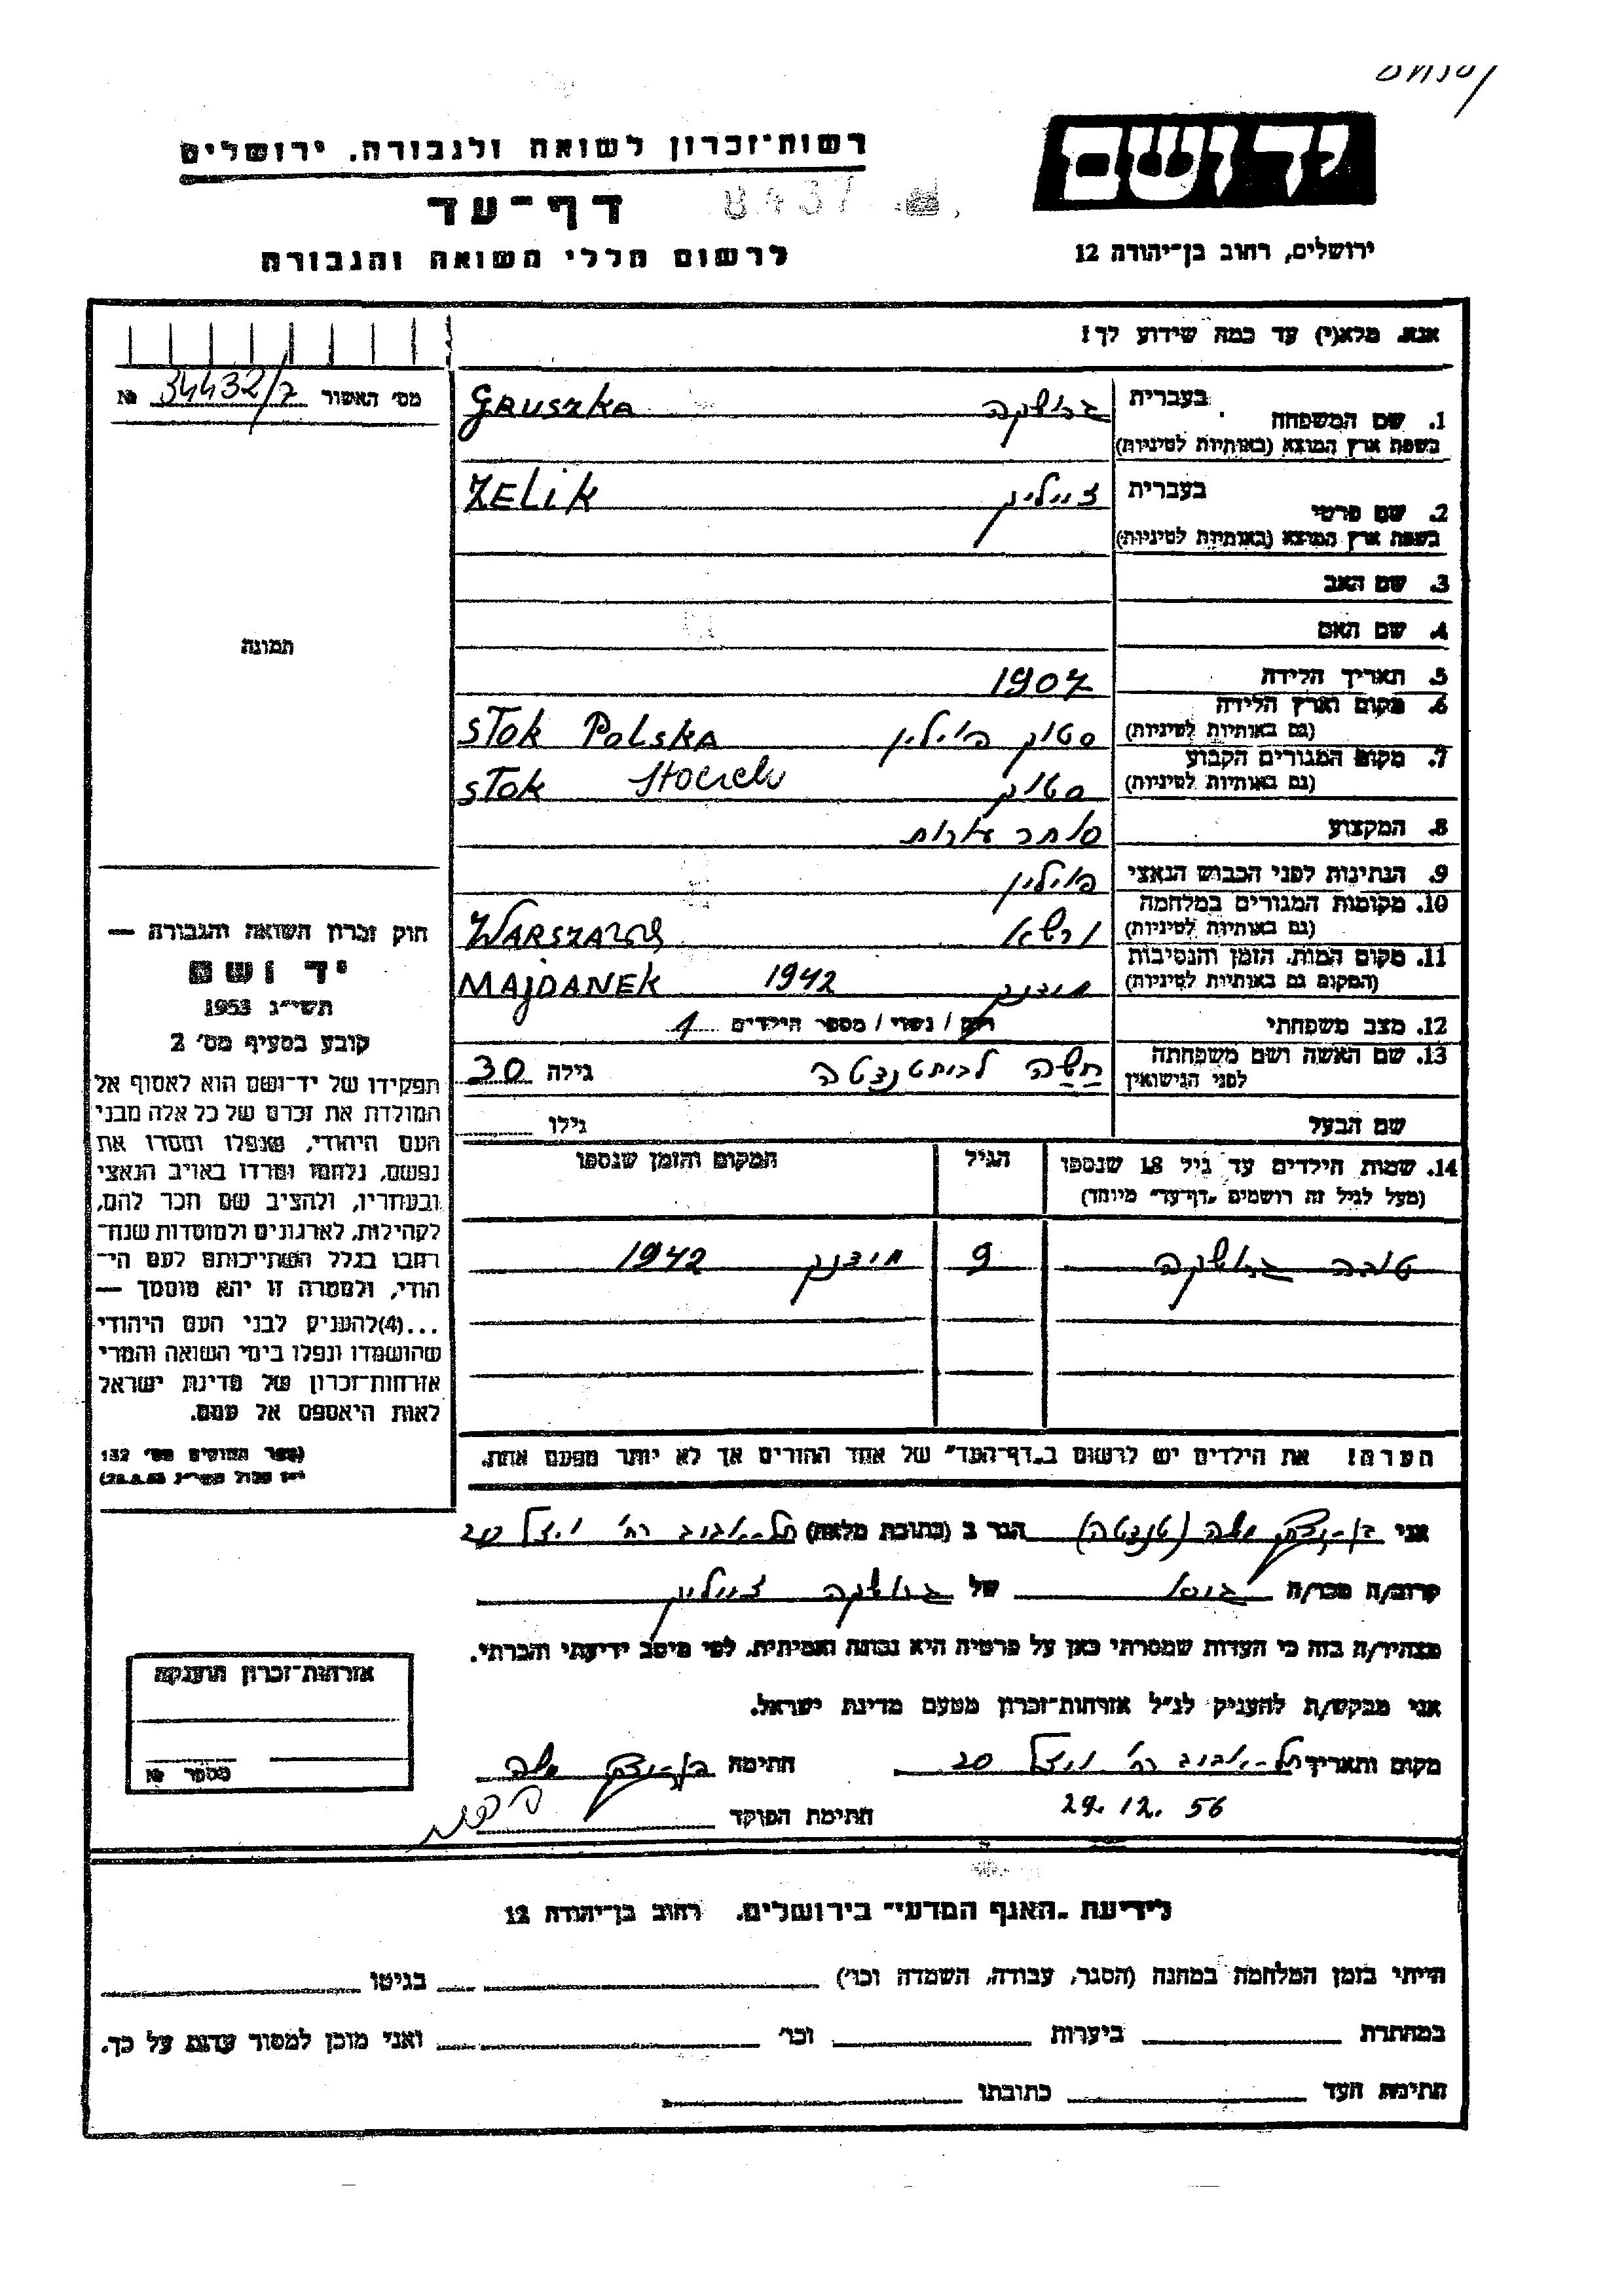 רשות־זכרון לשואה ולגבורה, ירושלים
יד ושם
דף־עד
8437
לרשום חללי השואה והגבורה
ירושלים, רחוב בן־יהודה 12
אנא, מלא(י) עד כמה שידוע לך!
מס׳ האשור 34432/7 №
1. שם המשפחה בעברית גרושקה GRUSZKA
בשפת ארץ המוצא (באותיות לטיניות)
2. שם פרטי בעברית זייליק ZELIK
בשפת ארץ המוצא (באותיות לטיניות)
3. שם האב
4. שם האם
תמונה
5. תאריך הלידה 1907
6. מקום וארץ הלידה סטוק פוילין STOK POLSKA
(גם באותיות לטיניות)
7. מקום המגורים הקבוע סטוק STOK
(גם באותיות לטיניות)
8. המקצוע סוחר עורות
9. הנתינות לפני הכבוש הנאצי פוילין
10. מקומות המגורים במלחמה ורשא WARSZAWA
(גם באותיות לטיניות)
11. מקום המות, הזמן והנסיבות מידנק 1942 MAJDANEK
(המקום גם באותיות לטיניות)
12. מצב משפחתי רווק / נשוי / מספר הילדים 1
13. שם האשה ושם משפחתה
לפני הנישואין גילה 30
שם הבעל גילו
14. שמות הילדים עד גיל 18 שנספו הגיל המקום והזמן שנספו
(מעל לגיל זה רושמים „דף־עד״ מיוחד)
טובה גרושקה 9 מידנק 1942
הערה! את הילדים יש לרשום ב„דף־העד״ של אחד ההורים אך לא יותר מפעם אחת.
חוק זכרון השואה והגבורה —
יד ושם
תשי״ג 1953
קובע בסעיף מס׳ 2
תפקידו של יד־ושם הוא לאסוף אל
המולדת את זכרם של כל אלה מבני
העם היהודי, שנפלו ומסרו את
נפשם, נלחמו ומרדו באויב הנאצי
ובעוזריו, ולהציב שם וזכר להם,
לקהילות, לארגונים ולמוסדות שנח־
רבו בגלל השתייכותם לעם הי־
הודי, ולמטרה זו יהא מוסמך —
...(4) להעניק לבני העם היהודי
שהושמדו ונפלו בימי השואה והמרי
אזרחות־זכרון של מדינת ישראל
לאות היאספם אל עמם.
(ספר החוקים מס׳ 132
אני משה (טנצטה) הגר ב (כתובת מלאה) תל־אביב רח׳ 20
קרוב/ה מכר/ה גיסו של גרושקה זייליק
מצהיר/ה בזה כי העדות שמסרתי כאן על פרטיה היא נכונה ואמיתית, לפי מיטב ידיעתי והכרתי.
אני מבקש/ת להעניק לנ״ל אזרחות־זכרון מטעם מדינת ישראל.
מקום ותאריך תל־אביב רח׳ 20 חתימה משה
29.12.56 חתימת הפוקד
אזרחות־זכרון הוענקה
מספר №
לידיעת „האגף המדעי״ בירושלים, רחוב בן־יהודה 12
הייתי בזמן המלחמה במחנה (הסגר, עבודה, השמדה וכו׳) בגיטו
במחתרת ביערות וכו׳ ואני מוכן למסור עדות על כך.
חתימת העד כתובתו